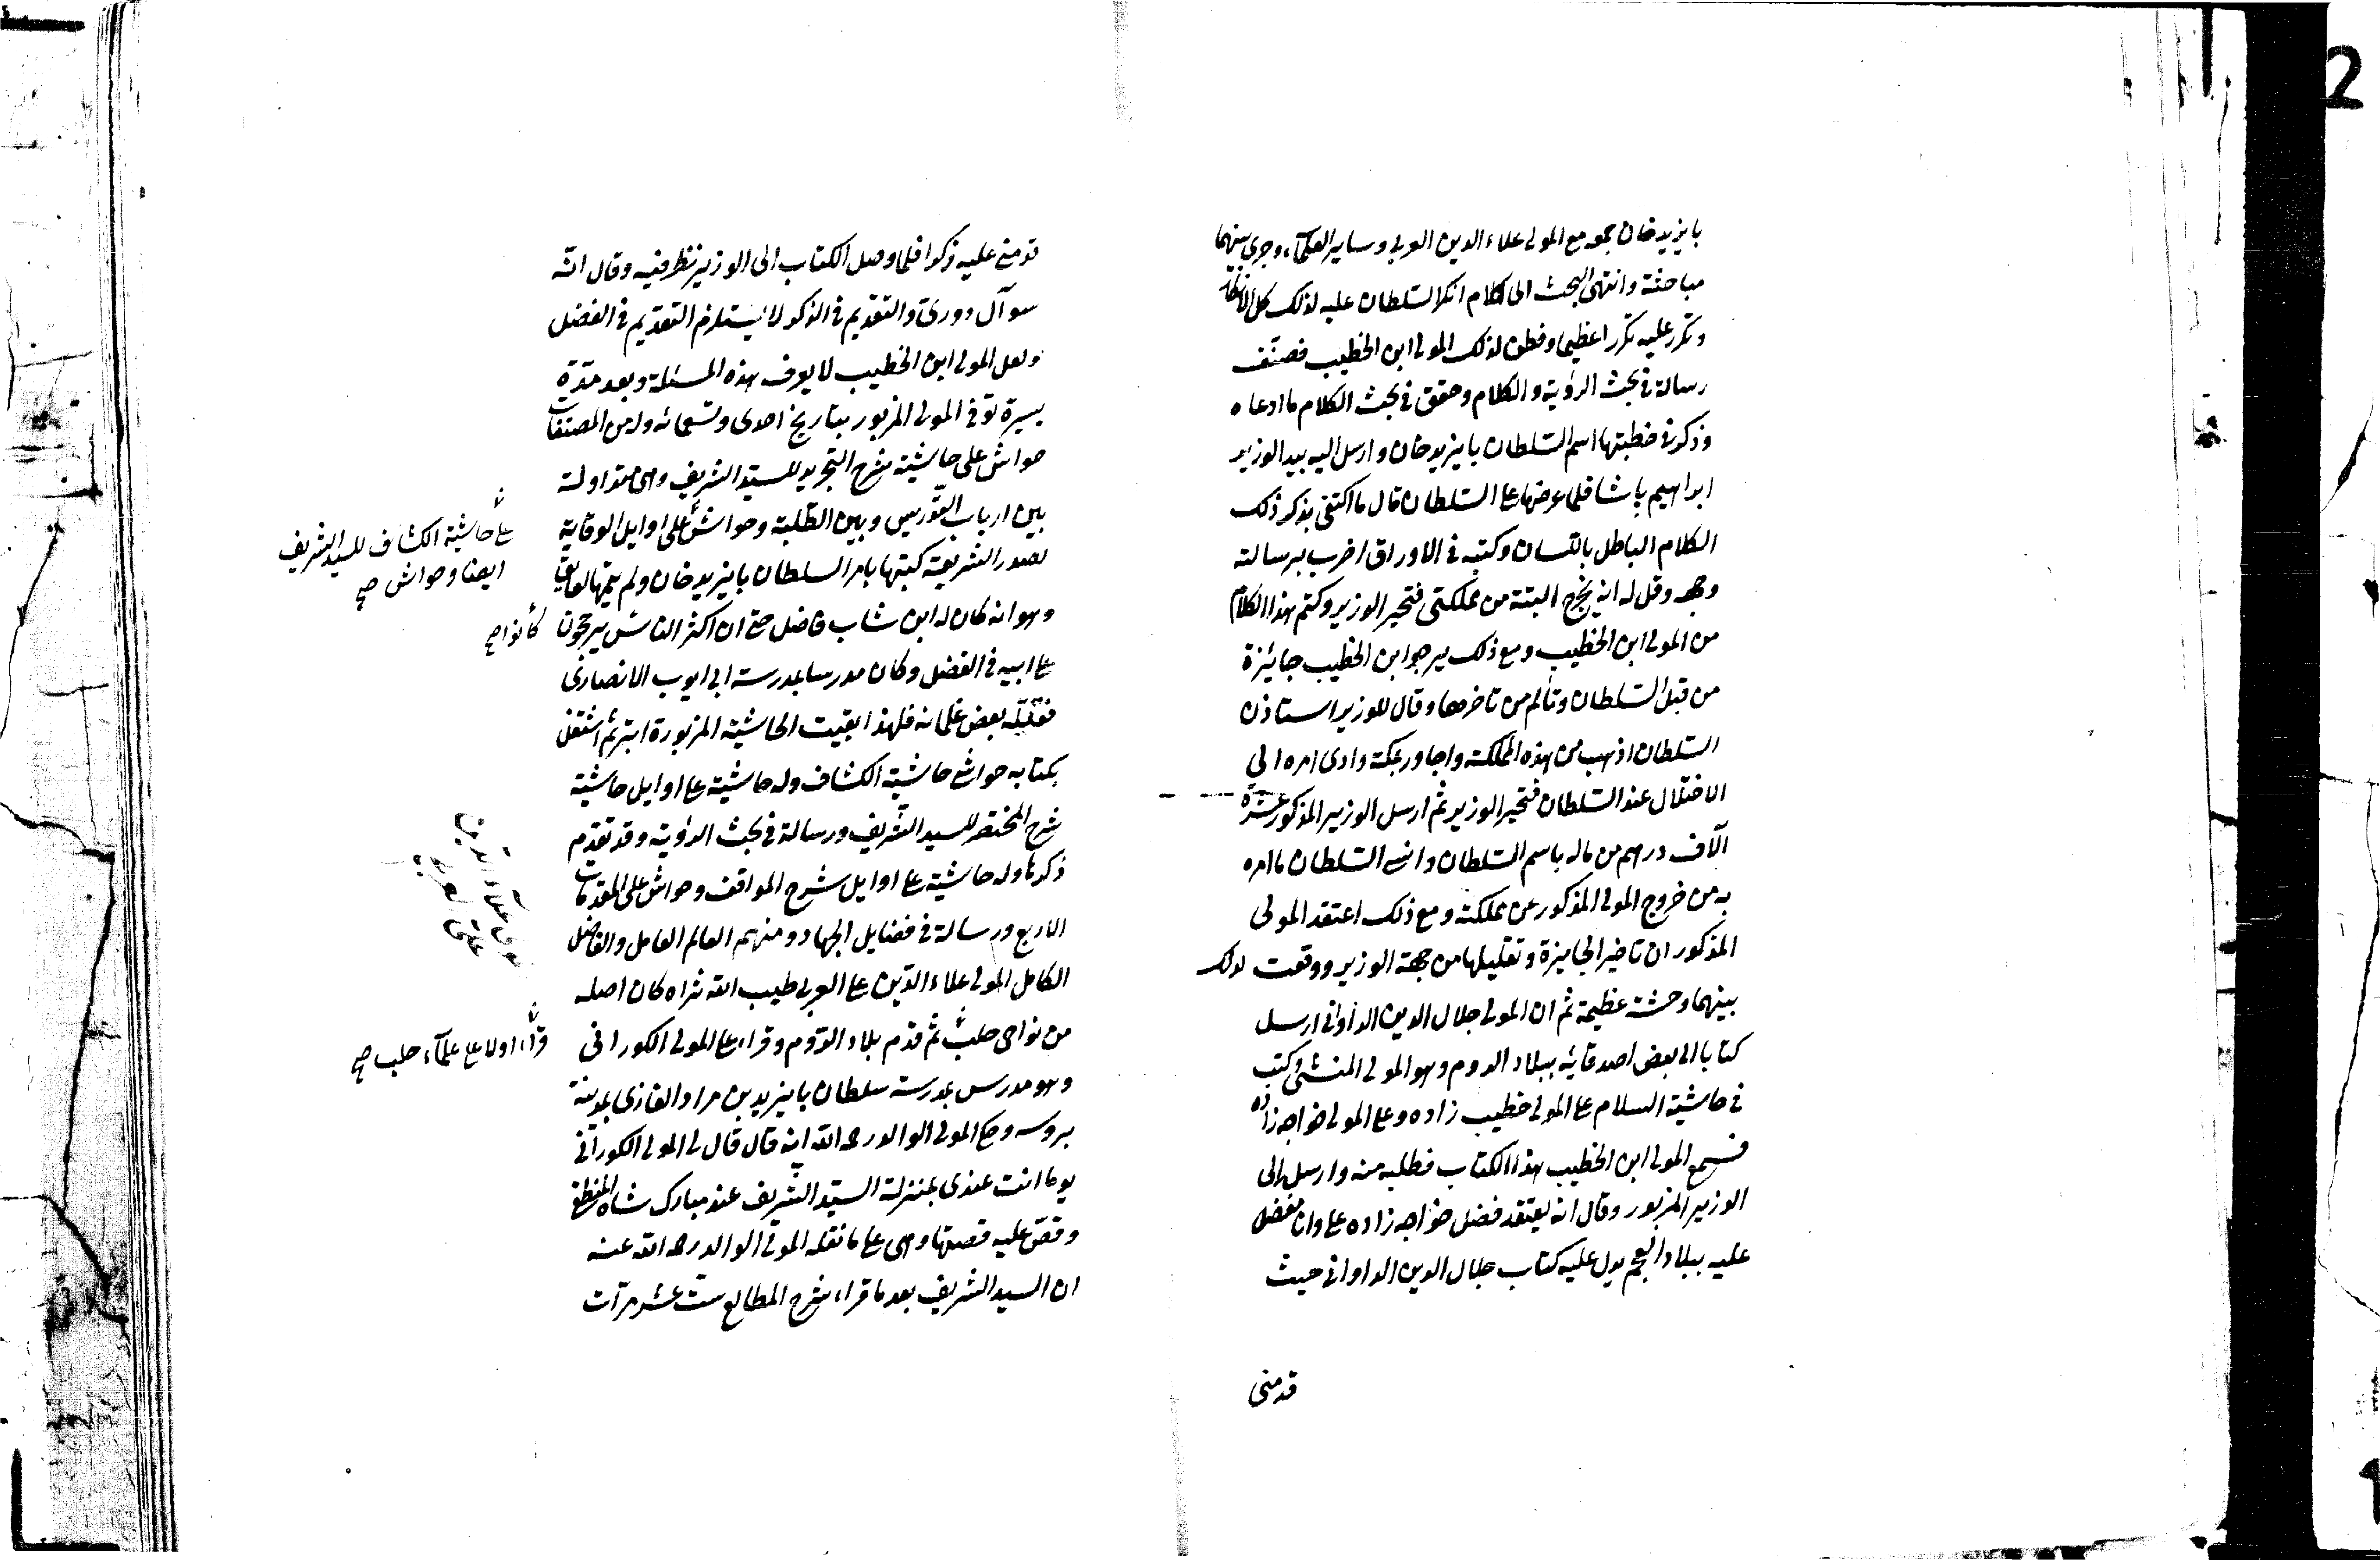 بايزيد خان جمعه مع المولى علاء الدين العربى وساير العلماء وجرى بينهما
مباحثة وانتهى البحث الى كلام انكر السلطان عليه لذلك كل الانكار
وتكدر عليه تكدرا عظيما وفطن لذلك المولى ابن الخطيب فصنّف
رسالة فى بحث الرؤية والكلام وحقق فى بحث الكلام ما ادعاه
وذكر فى خطبتها اسم السلطان بايزيد خان وارسل اليه بيد الوزير
ابراهيم پاشا فلما عرضها على السلطان قال ما اكتفى بذكر ذلك
الكلام الباطل باللسان وكتبه فى الاوراق اضرب برسالته
وجهه وقل له انه يخرج البتة من مملكتى فتحير الوزير وكتم هذا الكلام
من المولى ابن الخطيب ومع ذلك يرجو ابن الخطيب جائزة
من قبل السلطان وتألم من تاخرها وقال للوزير استاذن
السلطان اذهب من هذه المملكة واجاور بمكة وادى امره الى
الاختلال عند السلطان فتحير الوزير ثم ارسل الوزير المذكور عشرة
آلاف درهم من ماله باسم السلطان وانسى السلطان ما امره
به من خروج المولى المذكور عن مملكته ومع ذلك اعتقد المولى
المذكور ان تاخير الجايزة وتقليلها من جهة الوزير ووقعت لذلك
بينهما وحشة عظيمة ثم ان المولى جلال الدين الدوانى ارسل
كتابا الى بعض اصدقائه ببلاد الروم وهو المولى المنشى وكتب
فى حاشيته السلام على المولى خطيب زاده وعلى المولى خواجه زاده
فسمع المولى ابن الخطيب هذا الكتاب فطلبه منه وارسل الى
الوزير المزبور وقال انه يعتقد فضل خواجه زاده على وانا مفضل
عليه ببلاد العجم يدل عليه كتاب جلال الدين الداوانى حيث
قدمنى
قدمنى عليه ذكرا فلما وصل الكتاب الى الوزير نظر فيه وقال انه
سوآل دورى والتقديم فى الذكر لا يستلزم التقديم فى الفضل
ولعل المولى ابن الخطيب لا يعرف هذه المسئلة وبعد مدّة
يسيرة توفى المولى المزبور بتاريخ احدى وتسعمائه وله من المصنفات
حواش على حاشية شرح التجريد للسيد الشريف وهى متداولة
بين ارباب التدريس وبين الطلبة وحواش على اوايل الوقاية
على حاشية الكشاف للسيد الشريف
ايضا وحواش صح
لصدر الشريعة كتبها بامر السلطان بايزيد خان ولم يتمها لعايق
وهو انه كان له ابن شاب فاضل حتى ان اكثر الناس يرجحون
كانوا صح
على ابيه فى الفضل وكان مدرسا بمدرسة ابى ايوب الانصارى
فقتله بعض غلمانه فلهذا بقيت الحاشية المزبورة ابتر ثم اشتغل
بكتابه حواشى حاشية الكشاف وله حاشية على اوايل حاشية
شرح المختصر للسيد الشريف ورسالة فى بحث الرؤية وقد تقدم
ذكرها وله حاشية على اوايل شرح المواقف وحواش على المقدمات
الاربع ورسالة فى فضايل الجهاد ومنهم العالم العامل والفاضل
مولى علاء الدين
على العربى
الكامل المولى علاء الدين على العربى طيب الله ثراه كان اصله
من نواحى حلب ثم قدم بلاد الروم وقراء على المولى الكورانى
قراء اولا على علماء حلب صح
وهو مدرس بمدرسة سلطان بايزيد بن مراد الغازى بمدينة
بروسه وحكى المولى الوالد رحمه الله انه قال قال لى المولى الكورانى
يوما انت عندى بمنزلة السيد الشريف عند مبارك شاه المنطقى
وقصّ عليه قصتها وهى على ما نقله المولى الوالد رحمه الله عنه
ان السيد الشريف بعد ما قراء شرح المطالع ست عشر مرّات